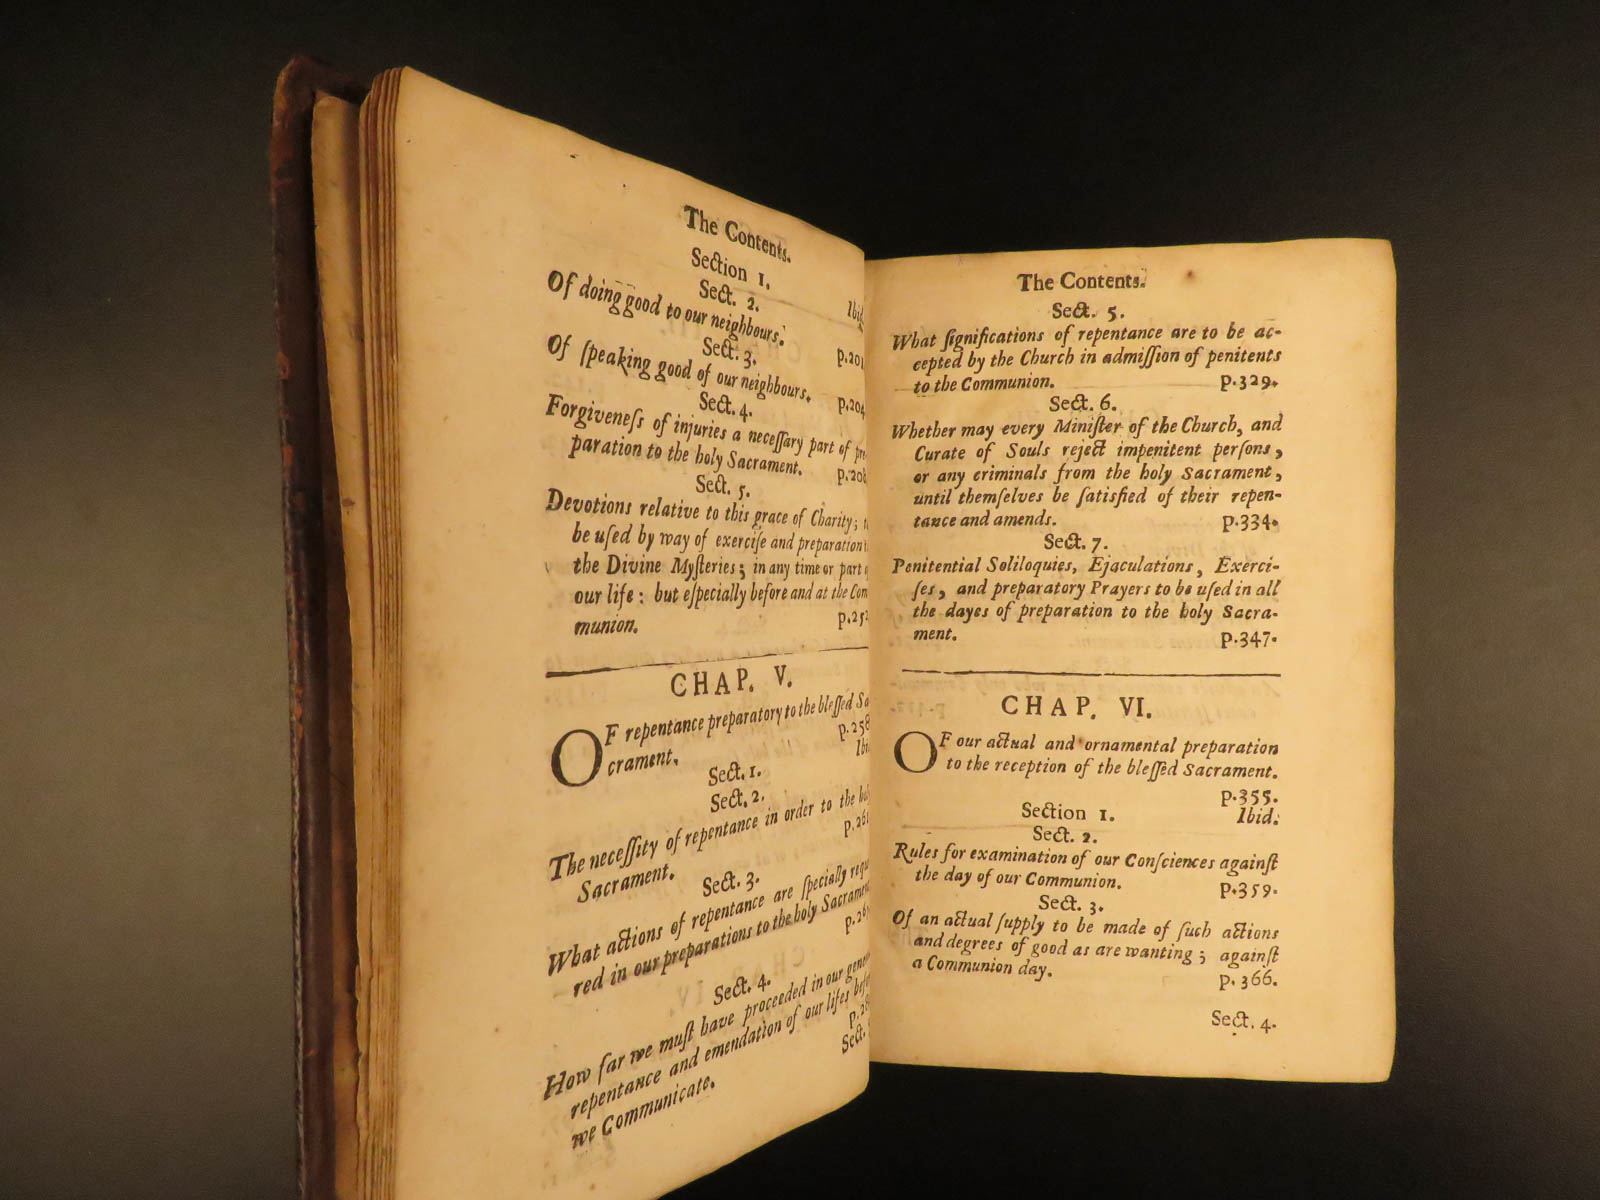 The Contents.
Section 1.
Ibid.
Sect. 2.
Of doing good to our neighbours.
p.201.
Sect. 3.
Of ſpeaking good of our neighbours.
p.204
Sect. 4.
Forgiveneſs of injuries a neceſſary part of pre-
paration to the holy Sacrament.
p.208
Sect. 5.
Devotions relative to this grace of Charity;
be uſed by way of exerciſe and preparation
the Divine Myſteries; in any time or part
our life: but eſpecially before and at the Com
munion.
p.252
CHAP. V.
OF repentance preparatory to the bleſſed Sa
crament.
p.258
Sect. 1.
Ibid
Sect. 2.
The neceſſity of repentance in order to the holy
Sacrament.
p.261
Sect. 3.
What actions of repentance are ſpecially requi
red in our preparations to the holy Sacrament
p.26
Sect. 4.
How far we muſt have proceeded in our general
repentance and emendation of our lifes before
we Communicate.
p.2
Sect.
The Contents.
Sect. 5.
What ſignifications of repentance are to be ac-
cepted by the Church in admiſſion of penitents
to the Communion. p.329.
Sect. 6.
Whether may every Miniſter of the Church, and
Curate of Souls reject impenitent perſons,
or any criminals from the holy Sacrament,
until themſelves be ſatisfied of their repen-
tance and amends. p.334.
Sect. 7.
Penitential Soliloquies, Ejaculations, Exerci-
ſes, and preparatory Prayers to be uſed in all
the dayes of preparation to the holy Sacra-
ment. p.347.
CHAP. VI.
OF our actual and ornamental preparation
to the reception of the bleſſed Sacrament.
p.355.
Section 1. Ibid.
Sect. 2.
Rules for examination of our Conſciences againſt
the day of our Communion. p.359.
Sect. 3.
Of an actual ſupply to be made of ſuch actions
and degrees of good as are wanting; againſt
a Communion day. p. 366.
Sect. 4.